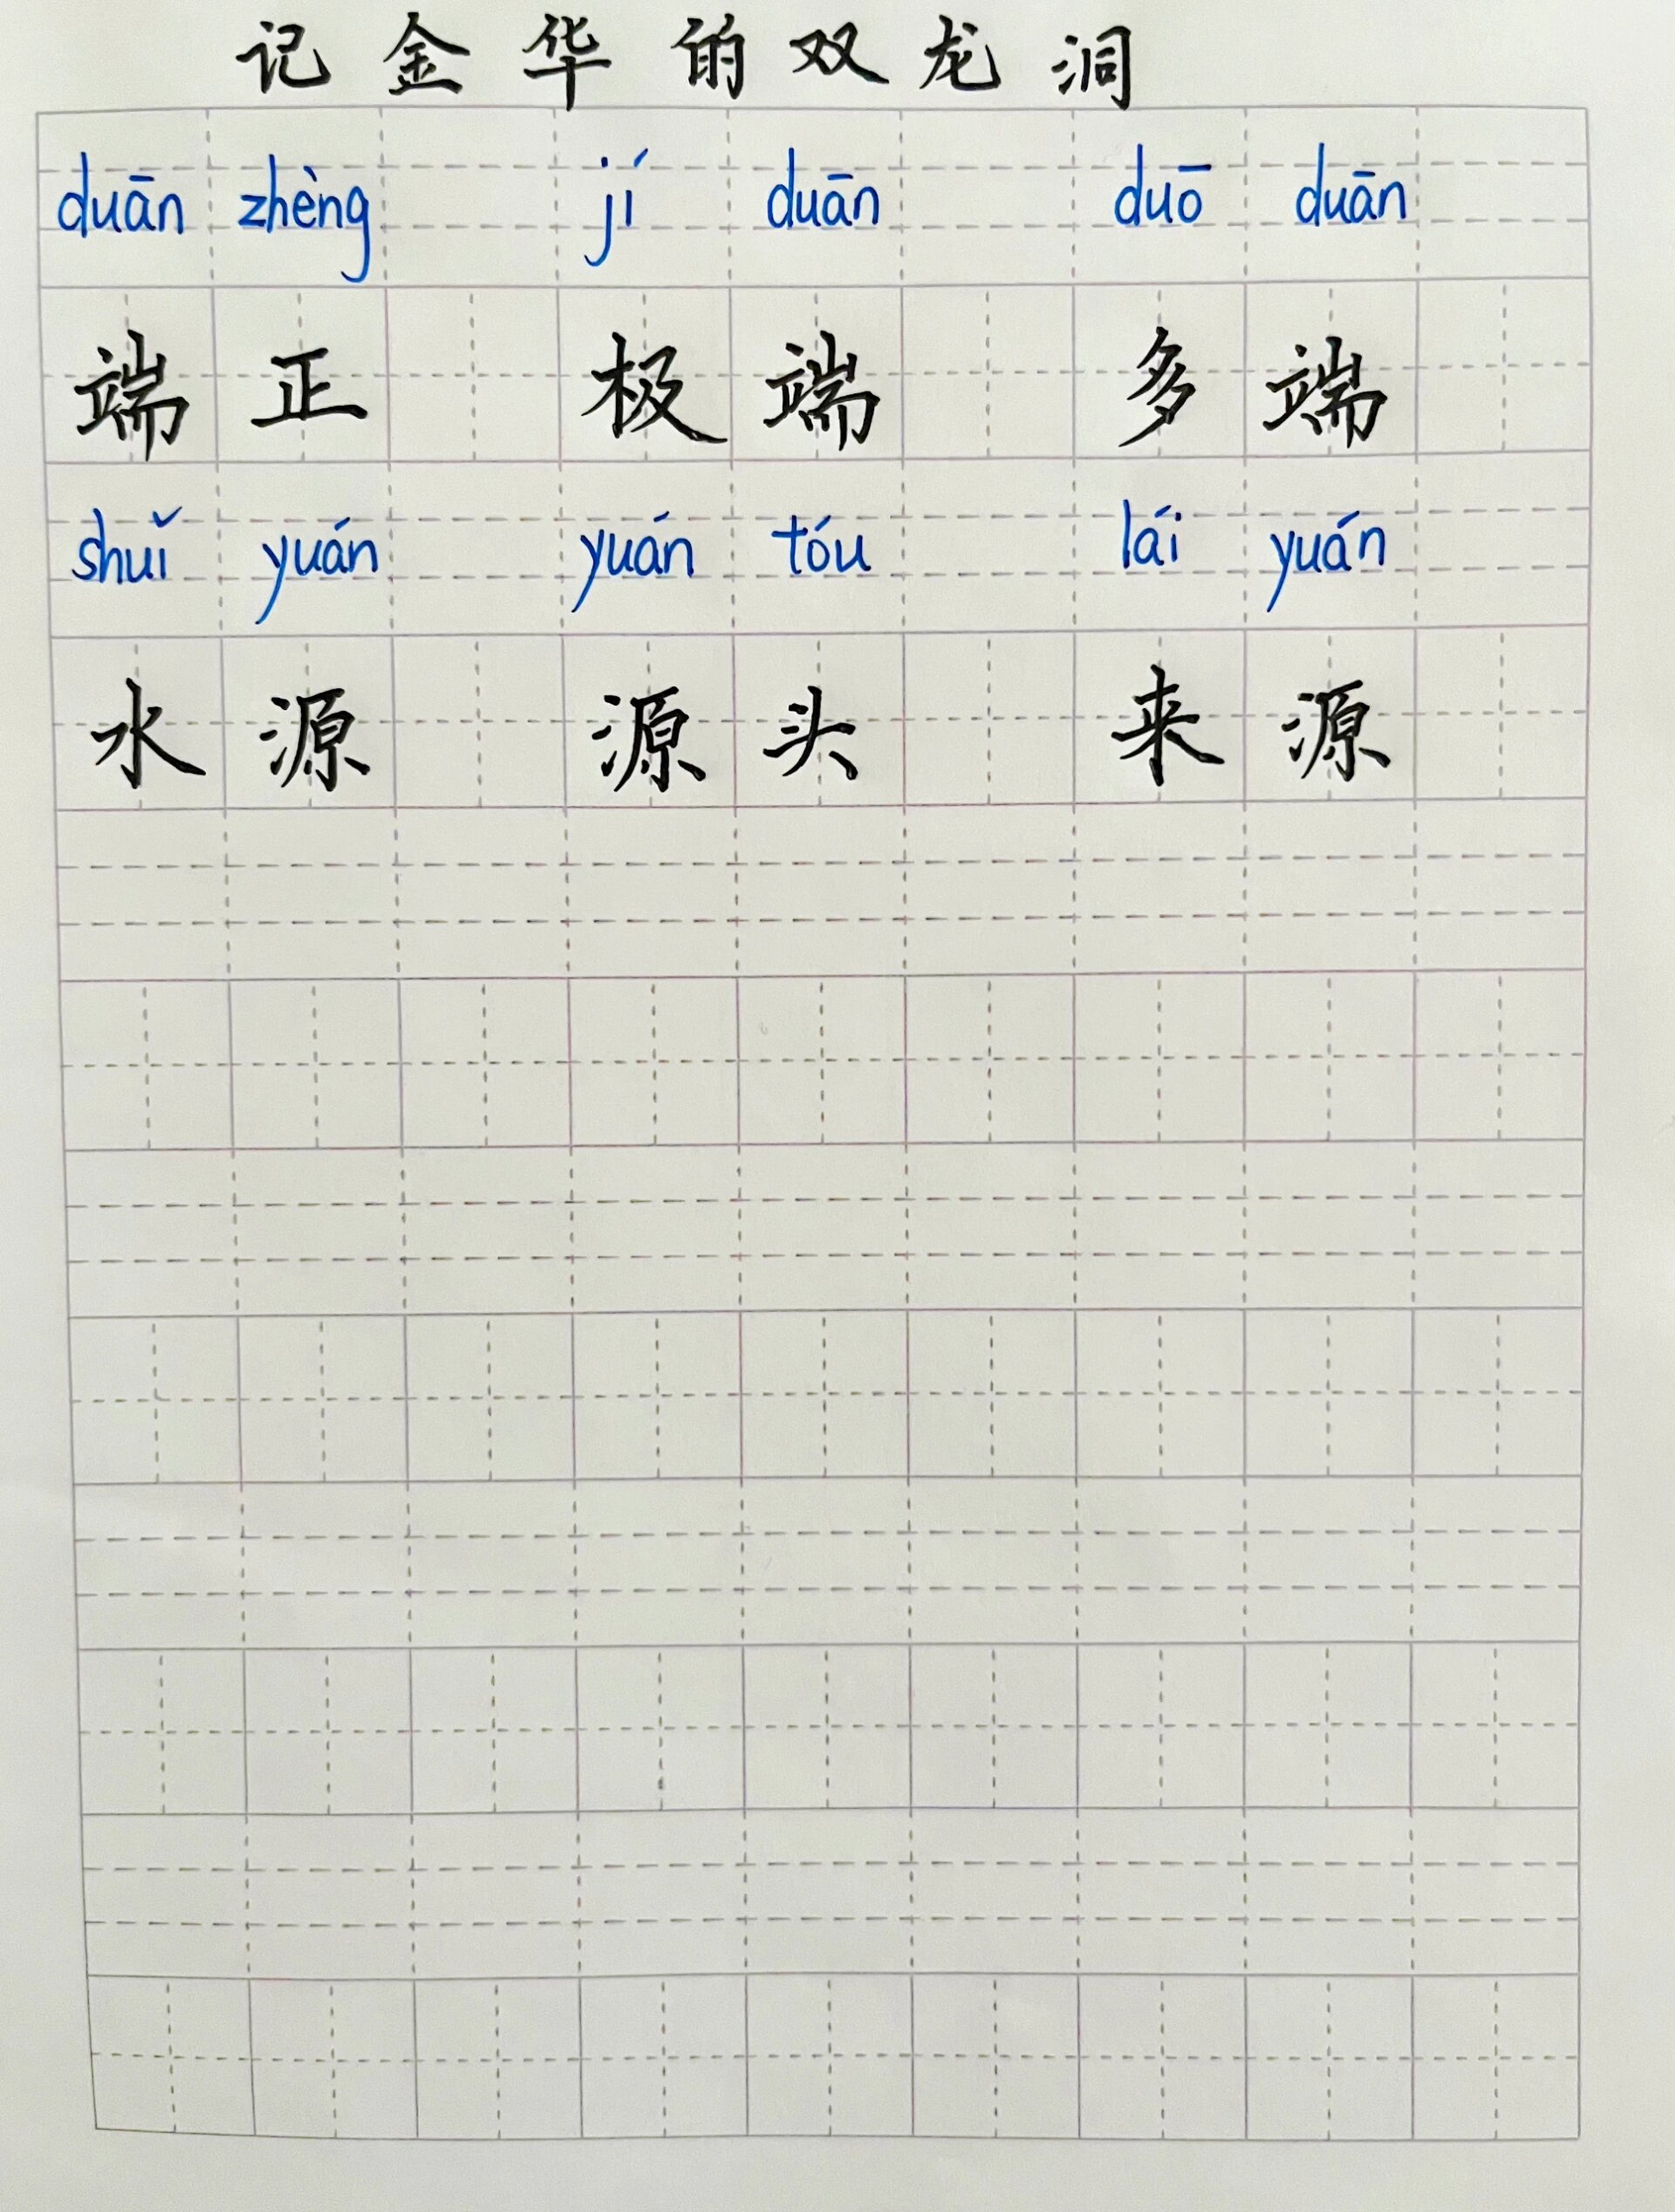 记金华的双龙洞
duān zhèng jí duān duō duān
端正 极端 多端
shuǐ yuán yuán tóu lái yuán
水源 源头 来源